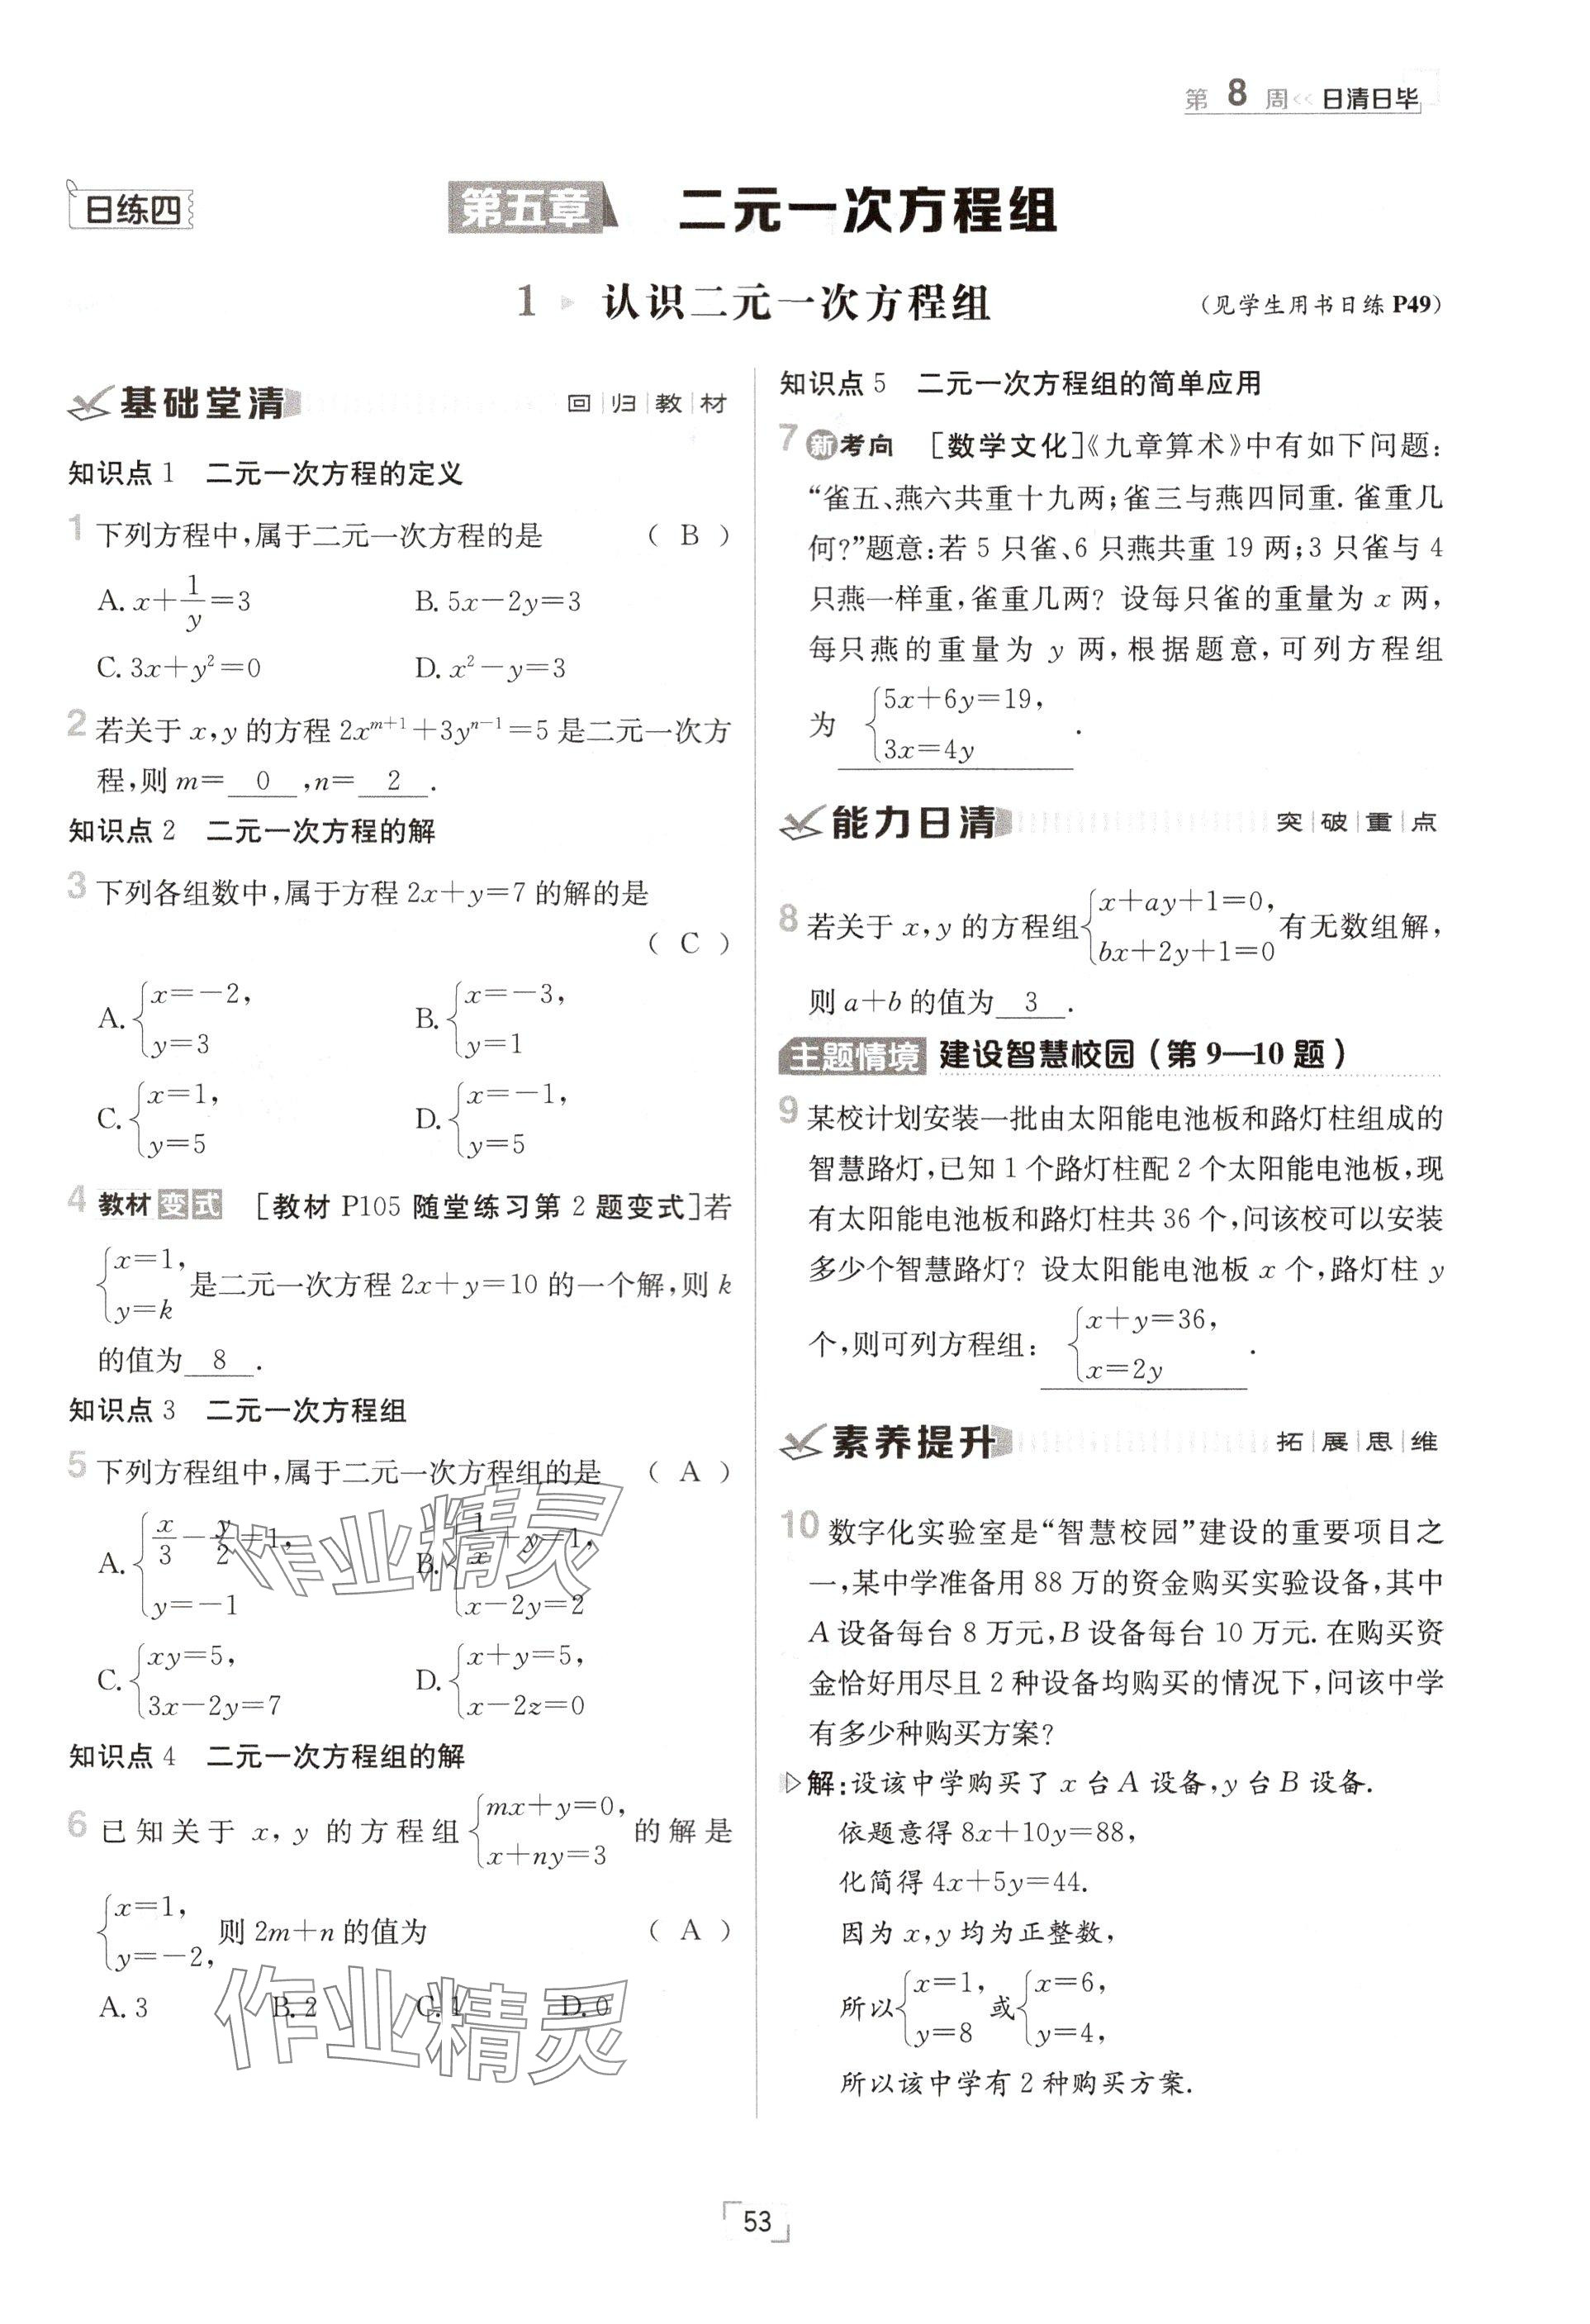 第 8 周 << 日清日毕
日练四
第五章 二元一次方程组
1 认识二元一次方程组 (见学生用书日练P49)
基础堂清 回归教材
知识点1 二元一次方程的定义
1 下列方程中,属于二元一次方程的是 ( B )
A. x+1/y=3 B. 5x-2y=3
C. 3x+y²=0 D. x²-y=3
2 若关于 x,y 的方程 2x^{m+1}+3y^{n-1}=5 是二元一次方
程,则 m= 0 ,n= 2 .
知识点2 二元一次方程的解
3 下列各组数中,属于方程 2x+y=7 的解的是
( C )
A. {x=-2, y=3 B. {x=-3, y=1
C. {x=1, y=5 D. {x=-1, y=5
4 教材变式 [教材 P105 随堂练习第 2 题变式]若
{x=1, y=k 是二元一次方程 2x+y=10 的一个解,则 k
的值为 8 .
知识点3 二元一次方程组
5 下列方程组中,属于二元一次方程组的是 ( A )
A. {x/3-y/2=1, y=-1 B. {1/x+y=1, x-2y=2
C. {xy=5, 3x-2y=7 D. {x+y=5, x-2z=0
知识点4 二元一次方程组的解
6 已知关于 x, y 的方程组 {mx+y=0, x+ny=3 的解是
{x=1, y=-2, 则 2m+n 的值为 ( A )
A. 3 B. 2 C. 1 D. 0
知识点5 二元一次方程组的简单应用
7 新考向 [数学文化]《九章算术》中有如下问题:
“雀五、燕六共重十九两;雀三与燕四同重.雀重几
何?”题意:若 5 只雀、6 只燕共重 19 两;3 只雀与 4
只燕一样重,雀重几两? 设每只雀的重量为 x 两,
每只燕的重量为 y 两,根据题意,可列方程组
为 {5x+6y=19, 3x=4y .
能力日清 突破重点
8 若关于 x,y 的方程组 {x+ay+1=0, bx+2y+1=0 有无数组解,
则 a+b 的值为 3 .
主题情境 建设智慧校园(第 9—10 题)
9 某校计划安装一批由太阳能电池板和路灯柱组成的
智慧路灯,已知 1 个路灯柱配 2 个太阳能电池板,现
有太阳能电池板和路灯柱共 36 个,问该校可以安装
多少个智慧路灯? 设太阳能电池板 x 个,路灯柱 y
个,则可列方程组: {x+y=36, x=2y .
素养提升 拓展思维
10 数字化实验室是“智慧校园”建设的重要项目之
一,某中学准备用 88 万的资金购买实验设备,其中
A 设备每台 8 万元,B 设备每台 10 万元.在购买资
金恰好用尽且 2 种设备均购买的情况下,问该中学
有多少种购买方案?
解:设该中学购买了 x 台 A 设备,y 台 B 设备.
依题意得 8x+10y=88,
化简得 4x+5y=44.
因为 x,y 均为正整数,
所以 {x=1, y=8 或 {x=6, y=4,
所以该中学有 2 种购买方案.
作业精灵
作业精灵
53